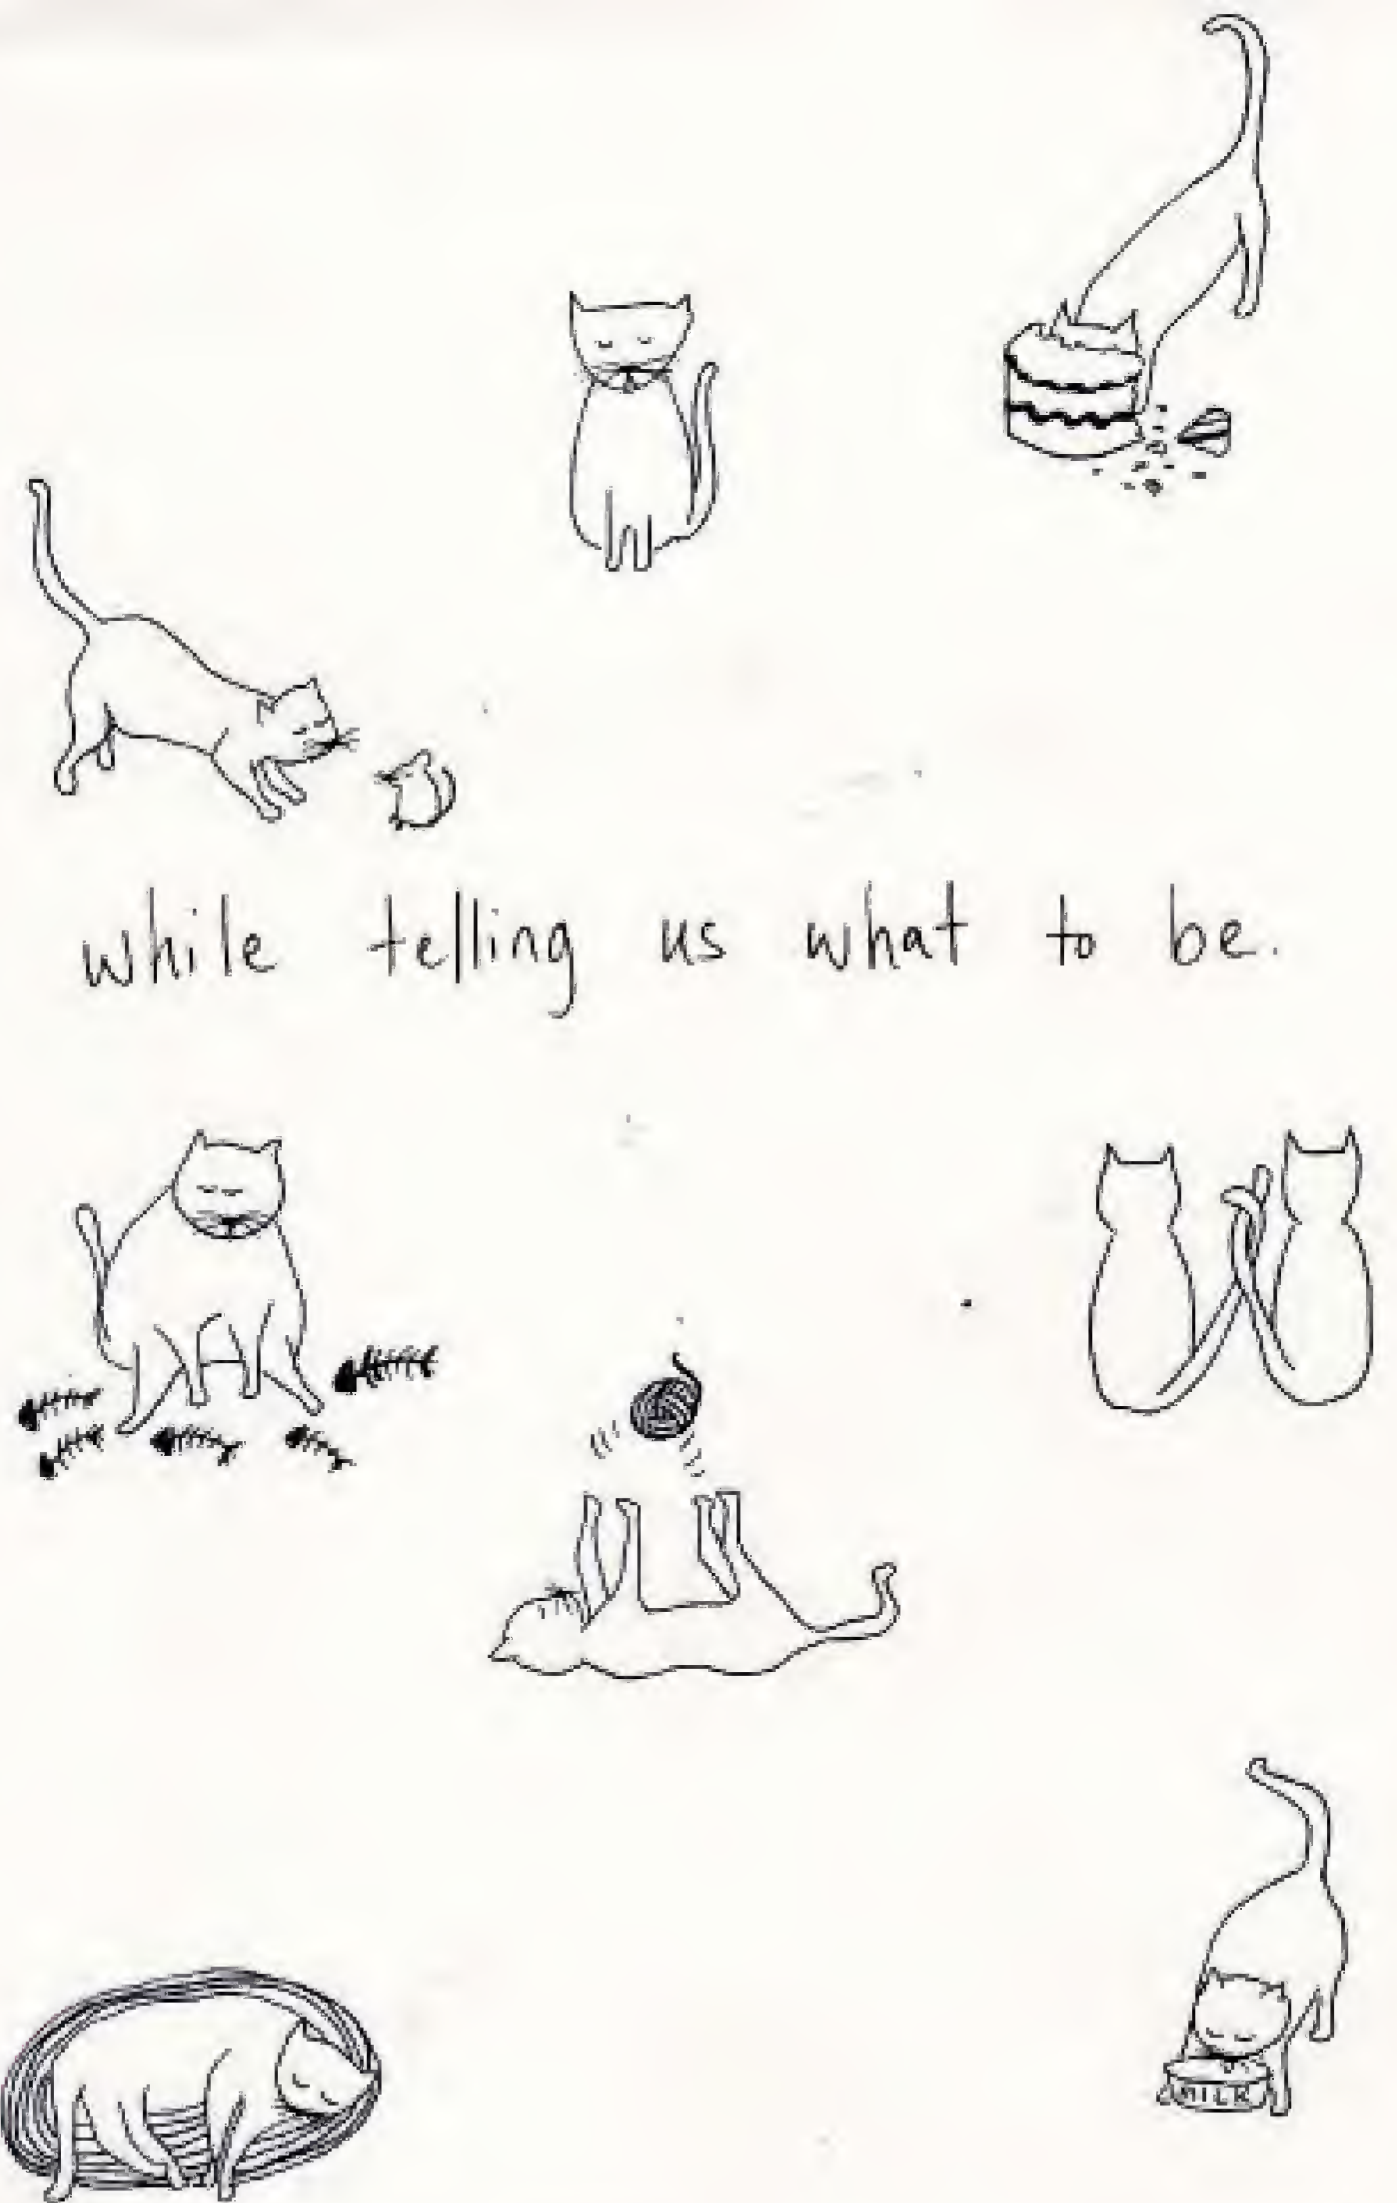 while telling us what to be.
MILK